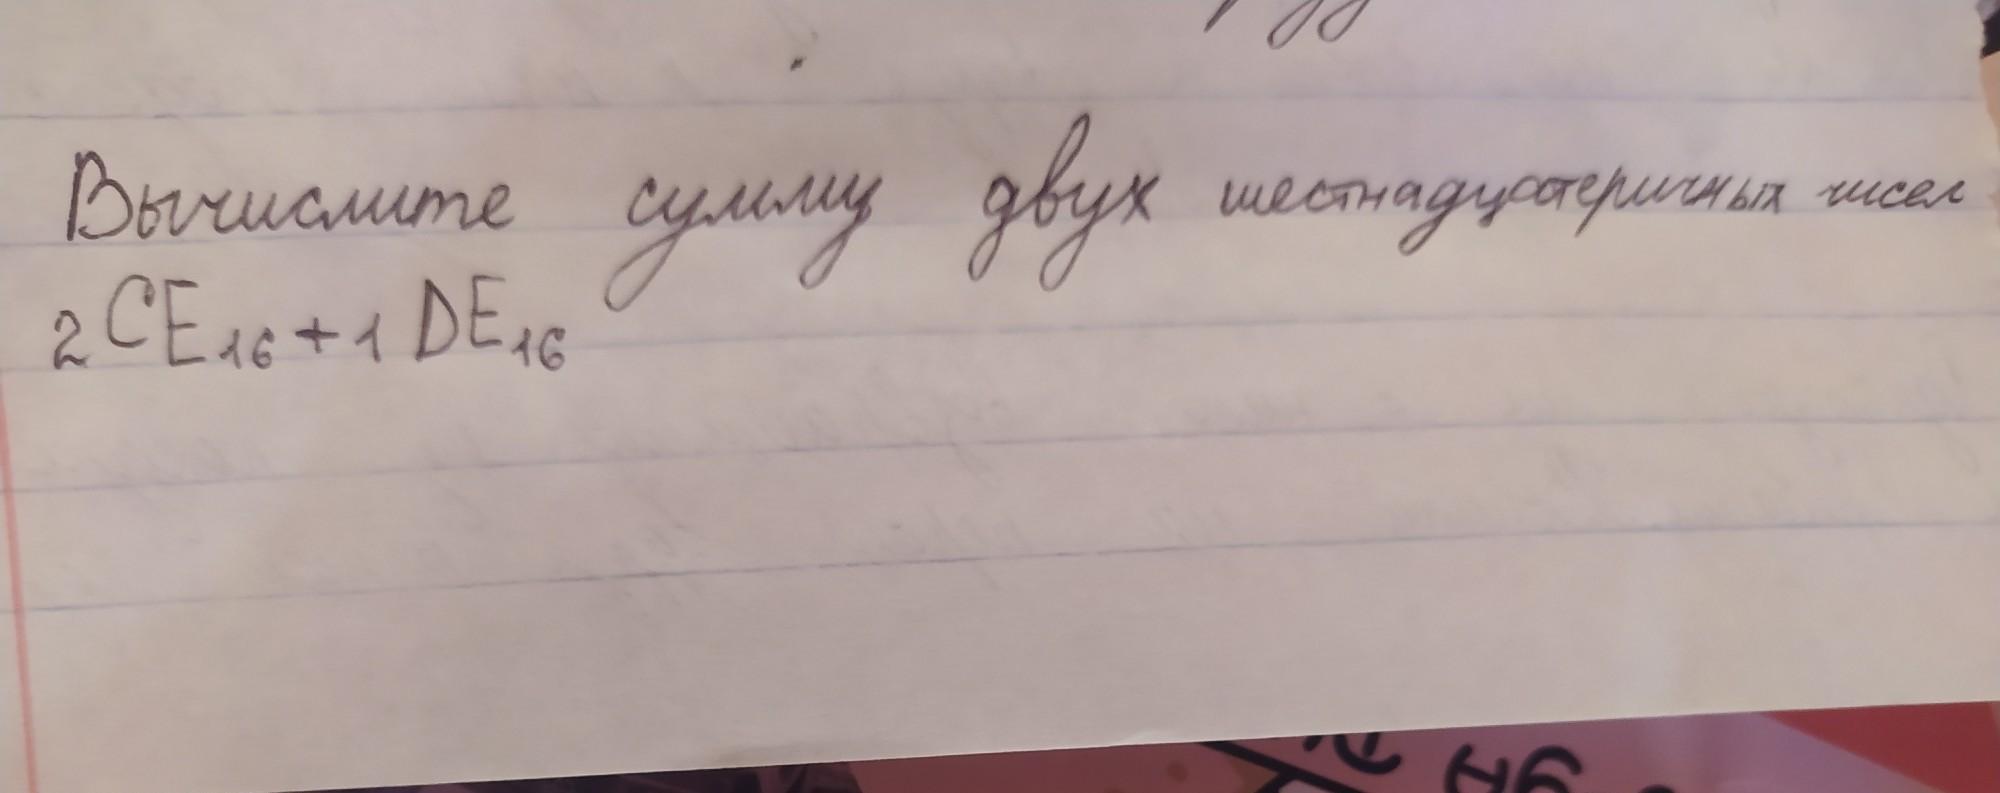 Вычислите сумму двух шестнадцатеричных чисел
2CE₁₆+1DE₁₆